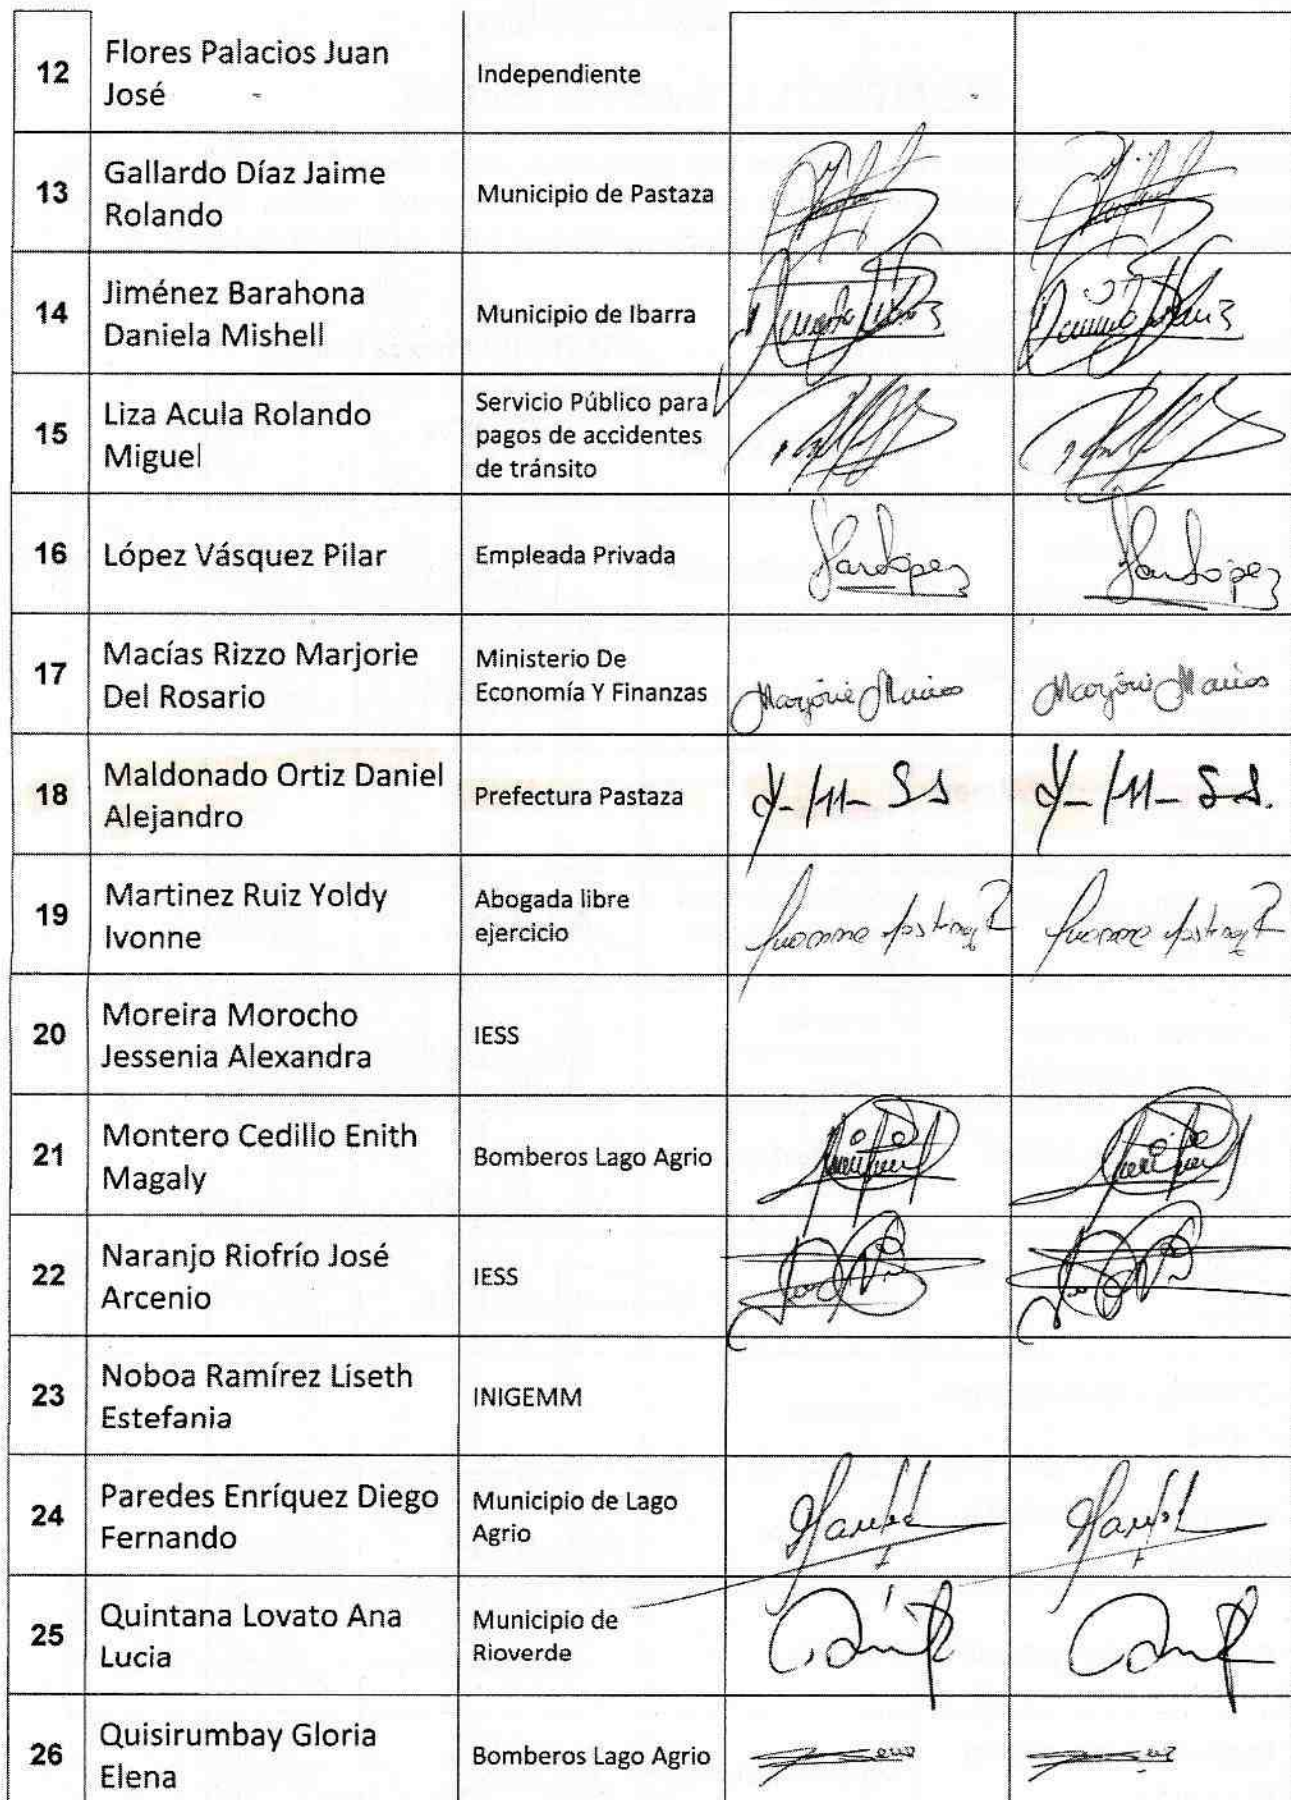 12
Flores Palacios Juan
José
Independiente
13
Gallardo Díaz Jaime
Rolando
Municipio de Pastaza
14
Jiménez Barahona
Daniela Mishell
Municipio de Ibarra
15
Liza Acula Rolando
Miguel
Servicio Público para
pagos de accidentes
de tránsito
16
López Vásquez Pilar
Empleada Privada
17
Macías Rizzo Marjorie
Del Rosario
Ministerio De
Economía Y Finanzas
Marjorie Macias
Marjorie Macias
18
Maldonado Ortiz Daniel
Alejandro
Prefectura Pastaza
19
Martinez Ruiz Yoldy
Ivonne
Abogada libre
ejercicio
20
Moreira Morocho
Jessenia Alexandra
IESS
21
Montero Cedillo Enith
Magaly
Bomberos Lago Agrio
22
Naranjo Riofrío José
Arcenio
IESS
23
Noboa Ramírez Liseth
Estefania
INIGEMM
24
Paredes Enríquez Diego
Fernando
Municipio de Lago
Agrio
25
Quintana Lovato Ana
Lucia
Municipio de
Rioverde
26
Quisirumbay Gloria
Elena
Bomberos Lago Agrio